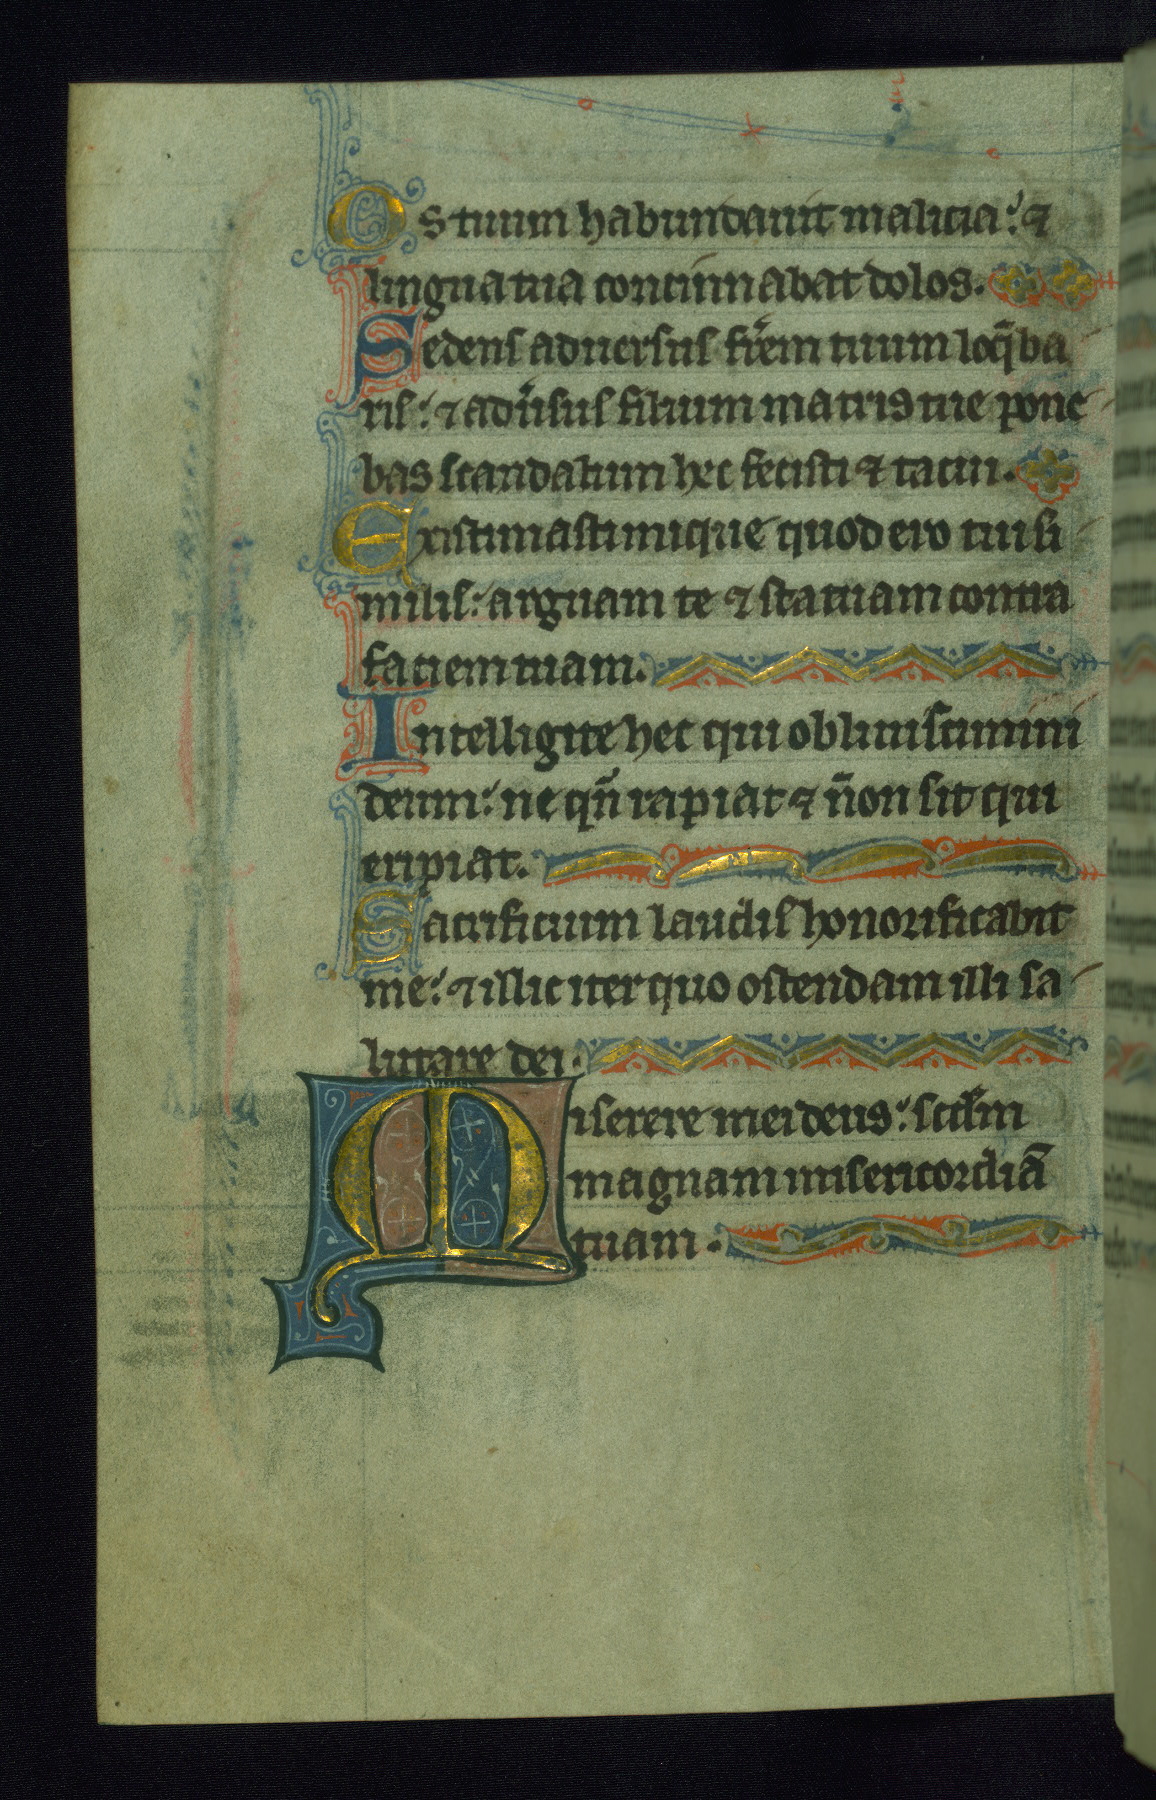 Os tuum habundauit malicia: ⁊
lingua tua concinnabat dolos.
Sedens aduersus fr̄em tuum loq̄ba
ris: ⁊ adu̾sus filium matris tue pone
bas scandalum hec fecisti ⁊ tacui.
Existimasti inique quod ero tui si
milis: arguam te ⁊ statuam contra
faciem tuam.
Intelligite hec qui obliuiscimini
deum: ne qn̄ rapiat ⁊ n̄on sit qui
eripiat.
Sacrificium laudis honorificabit
me: ⁊ illic iter quo ostendam illi sa
lutare dei.
Miserere mei deus: scd̄m
magnam misericordiā
tuam.